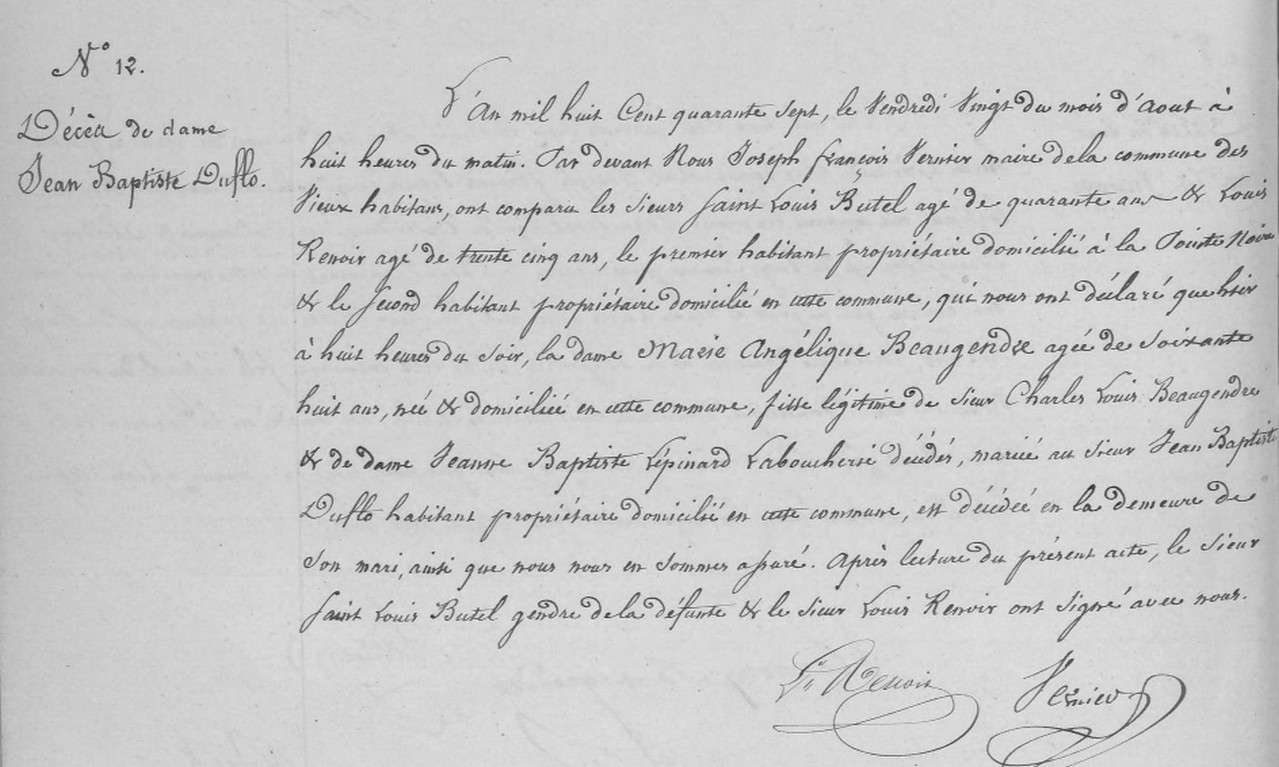 N° 12.
Décès de dame
Jean Baptiste Duflo.
L'An mil huit Cent quarante sept, le Vendredi Vingt du mois d'Aout à
huit heures du matin. Par devant Nous Joseph françois Vernier maire de la commune des
Vieux habitans, ont comparu les sieurs Saint Louis Butel agé de quarante ans & Louis
Renoir agé de trente cinq ans, le premier habitant propriétaire domicilié à la Pointe Noire
& le second habitant propriétaire domicilié en cette commune, qui nous ont déclaré que hier
à huit heures du soir, la dame Marie Angélique Beaugendre agée de soixante
huit ans, née & domiciliée en cette commune, fille légitime de sieur Charles Louis Beaugendre
& de dame Jeanne Baptiste Lépinard Laboucherie décédés, mariée au sieur Jean Baptiste
Duflo habitant propriétaire domicilié en cette commune, est décédée en la demeure de
son mari, ainsi que nous nous en sommes assuré. Après lecture du présent acte, le sieur
Saint Louis Butel gendre de la défunte & le sieur Louis Renoir ont signé avec nous.
Ls Renoir
Vernier